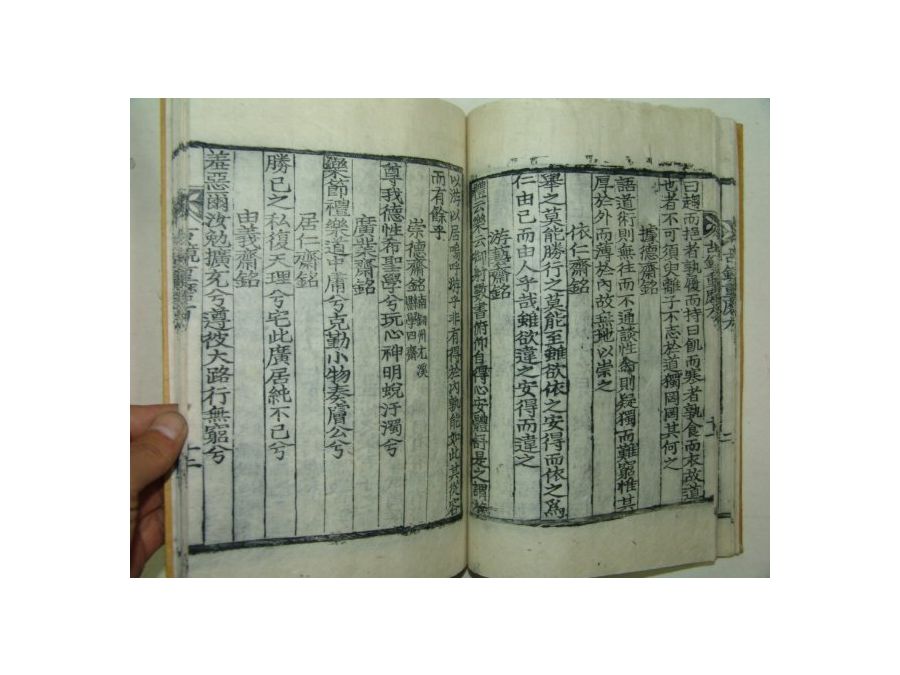 曰趨而挹者孰履而持曰飢而寒者孰食而衣故道
也者不可須臾離子不志於道獨罔罔其何之
據德齋銘
語道術則無往而不通談性命則疑獨而難窮惟其
厚於外而薄於內故無地以崇之
依仁齋銘
舉之莫能勝行之莫能至雖欲依之安得而依之爲
仁由己而由人乎哉雖欲違之安得而違之
游藝齋銘
禮云樂云御射數書俯仰自得心安體舒是之謂游
以游以居嗚呼游乎非有得於內孰能如此其從容
而有餘乎
崇德齋銘 南劍州尤溪
縣學四齋
尊我德性希聖學兮玩心神明蛻汙濁兮
廣業齋銘
樂節禮樂道中庸兮克勤小物奏膚公兮
居仁齋銘
勝己之私復天理兮宅此廣居純不已兮
由義齋銘
羞惡爾汝勉擴充兮遵彼大路行無窮兮